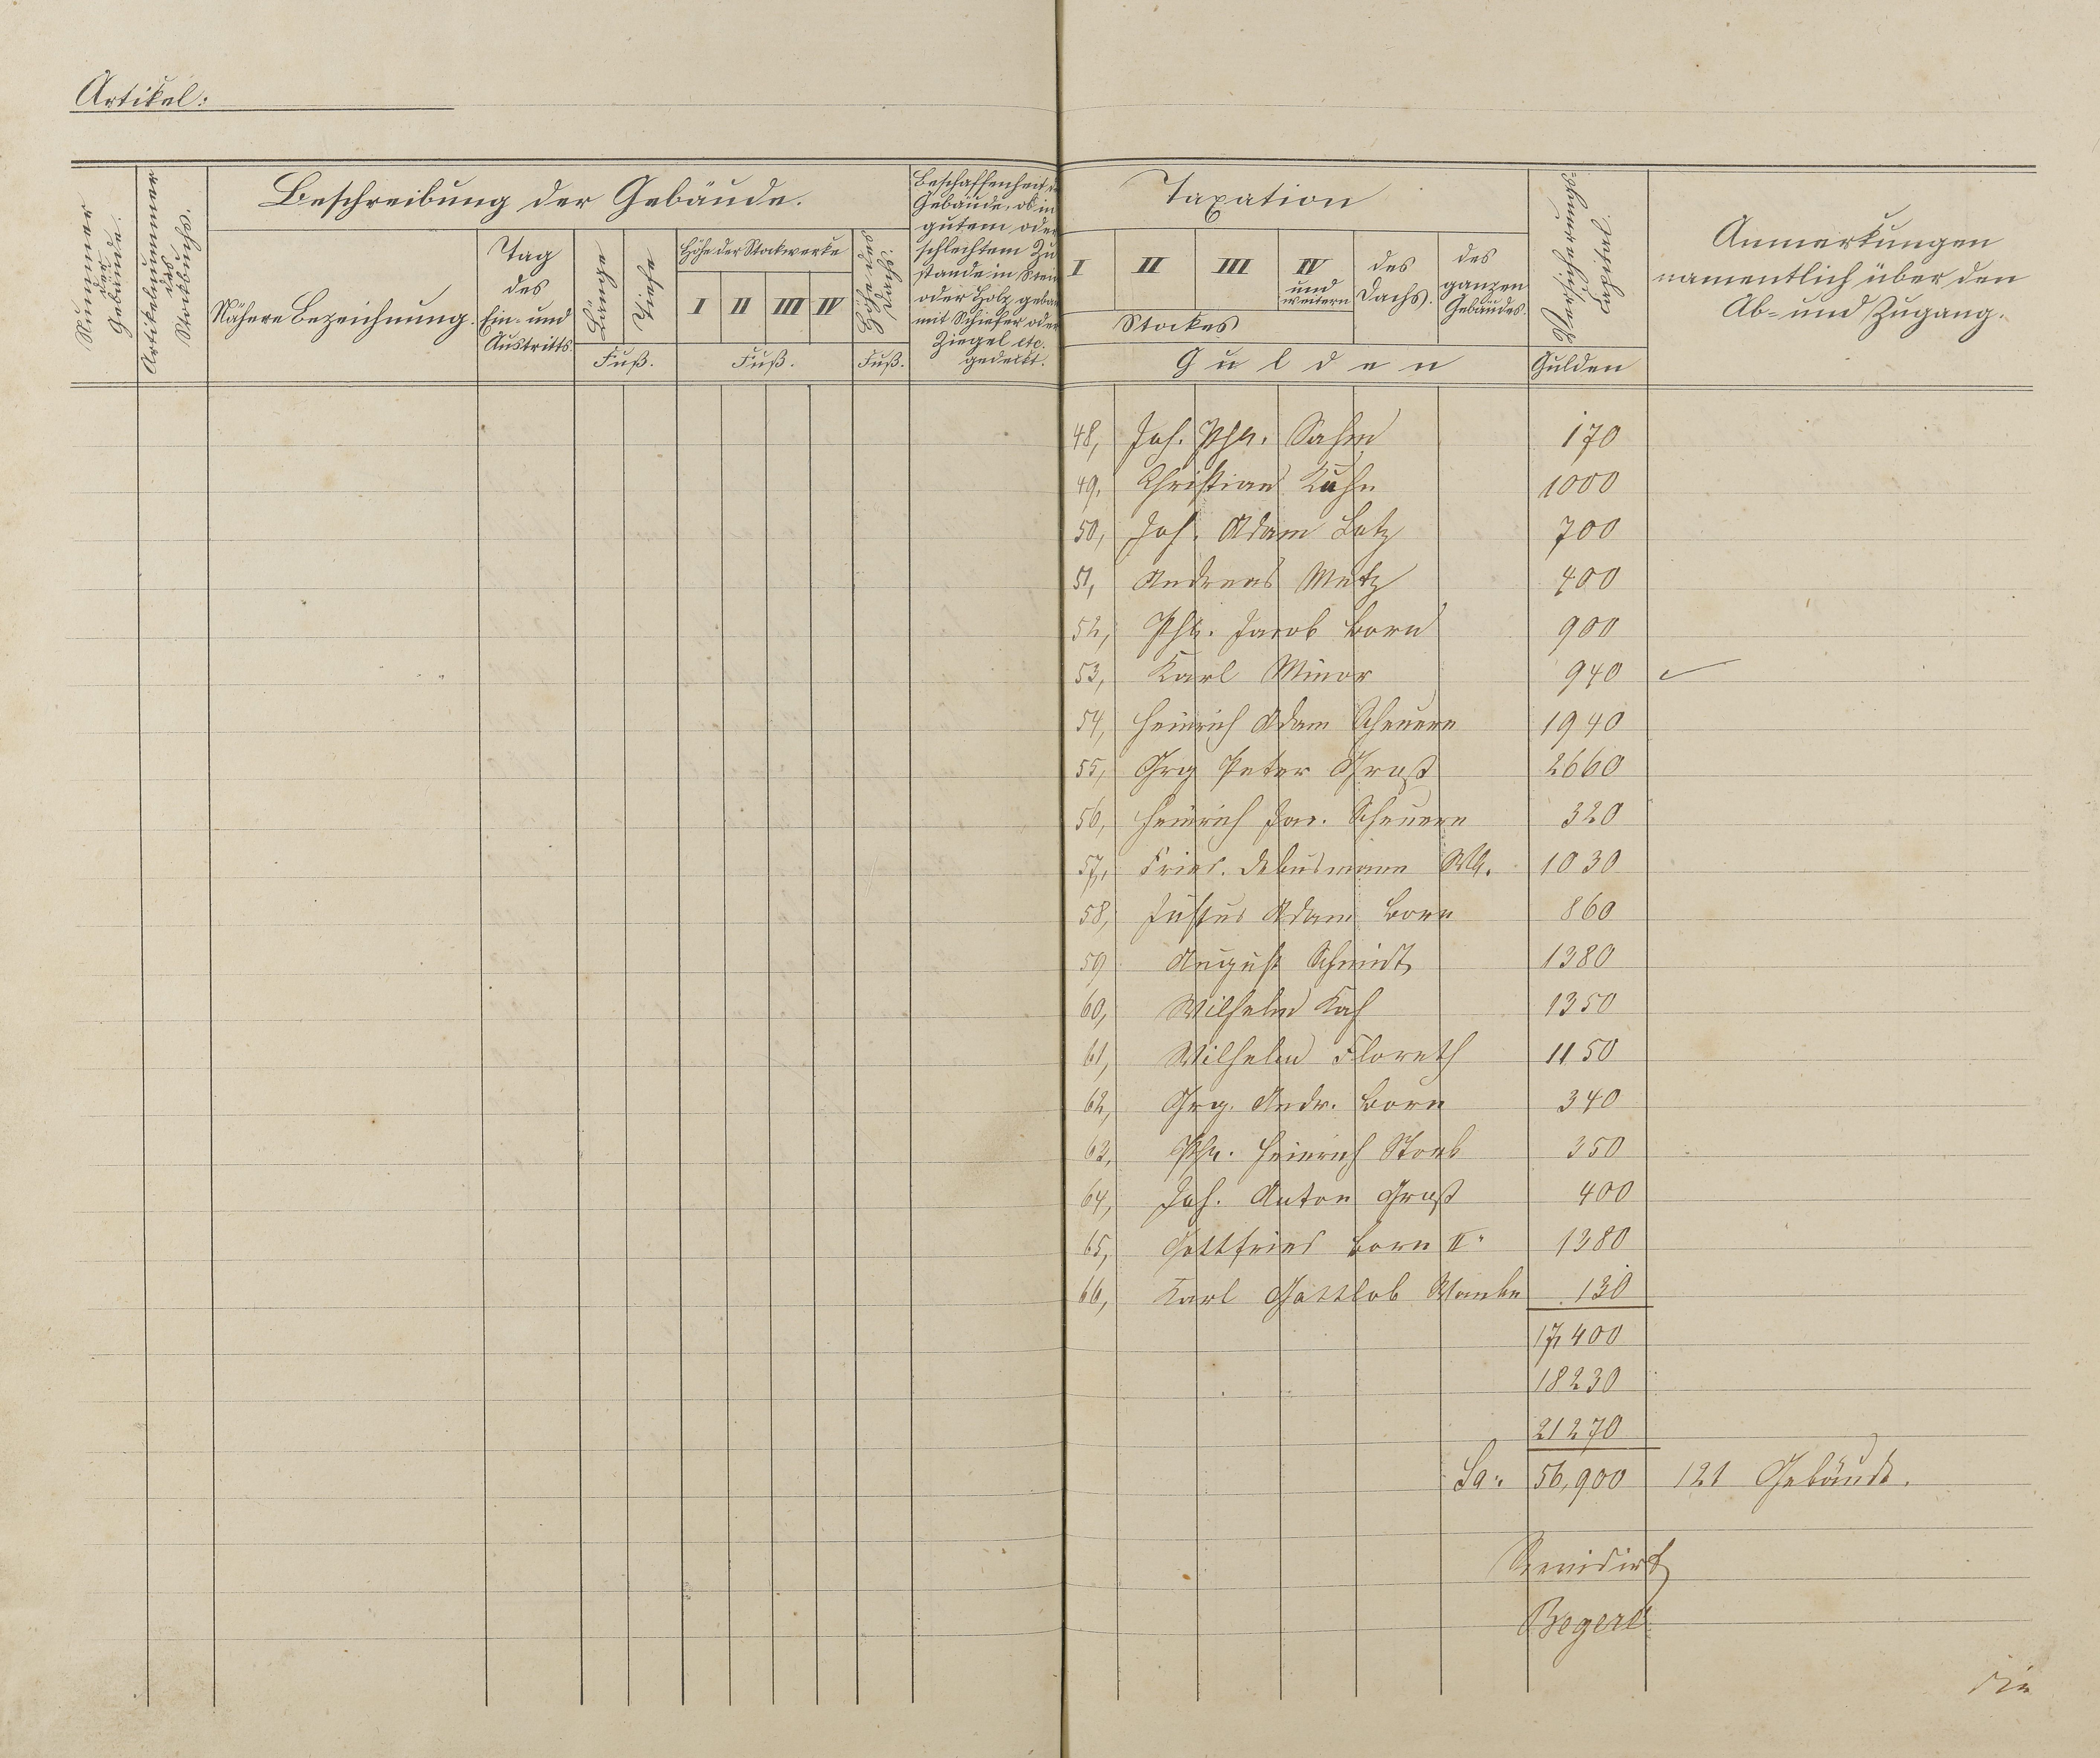 Artikel:
Nummer der Gebäude.
Artikelnummer des Stockbuchs.
Beschreibung der Gebäude.
Nähere Bezeichnung.
Tag des Ein- und Austritts
Länge
Tiefe
Fuß.
Höhe der Stockwerke
I II III IV
Fuß.
Höhe des Dachs.
Fuß.
Beschaffenheit der
Gebäude, ob in
gutem oder
schlechtem Zu
stande in Stein
oder Holz gebaut
mit Schiefer oder
Ziegel etc.
gedeckt.
Taxation
I II III IV und weitern
Stockes
des Dachs.
des ganzen Gebäudes.
Gulden
Versicherungs-Capital.
Gulden
Anmerkungen
namentlich über den
Ab- und Zugang.
48, Joh. Phil. Sahm 170
49, Christian Kuhn 1000
50, Joh. Adam Letz 700
51, Andreas Metz 400
52, Phil. Jacob Born 900
53, Karl Minor 940
54, Heinrich Adam Scheuern 1940
55, Grg Peter Gruß 2660
56, Heinrich Jac. Scheuern 320
57, Fried. Debusmann Wb. 1030
58, Justus Adam Born 860
59 August Schmidt 1380
60, Wilhelm Koch 1350
61, Wilhelm Floreth 1150
62, Grg. Andr. Born 340
63, Phil. Heinrich 350
64, Joh. Anton Gruß 400
65, Gottfried Born II. 1380
66, Karl Gottlob 130
17,400
18230
21270
Sa: 56,900 121 Gebäude.
Revidirt
Bogere
die